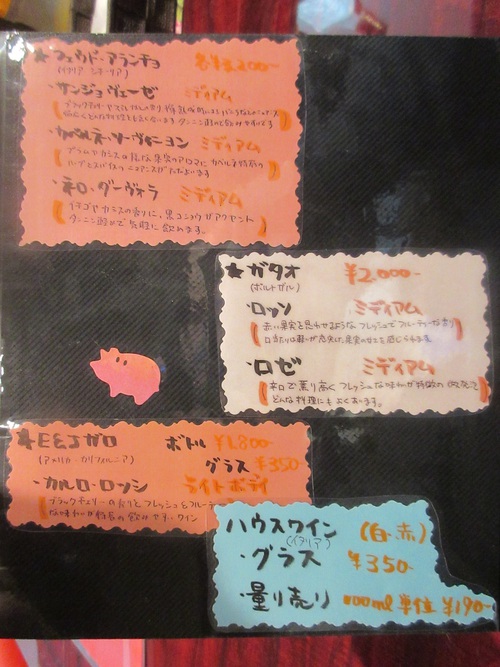 ★フェウド・アランチョ 各¥2,200-
(イタリア シチーリア)
・サンジョヴェーゼ ミディアム
・カベルネ・ソーヴィニヨン ミディアム
・ネロ・ダーヴォラ ミディアム
イチゴやカシスの香りに、黒コショウがアクセント
タンニン豊かで気軽に飲めます。
★ガタオ ¥2,000-
(ポルトガル)
・ロッソ ミディアム
赤い果実を思わせるようなフレッシュでフルーティーな香り
・ロゼ ミディアム
辛口で薫り高くフレッシュな味わいが特徴の
どんな料理にもよくあいます。
★E&Jガロ ボトル ¥1,800-
(アメリカ・カリフォルニア) グラス ¥350-
・カルロ・ロッシ ライトボディ
ブラックチェリーの香りとフレッシュ&フルー
な味わいが特長の飲みやすいワイン
ハウスワイン (白・赤)
(イタリア)
・グラス ¥350-
・量り売り 100ml単位 ¥190-